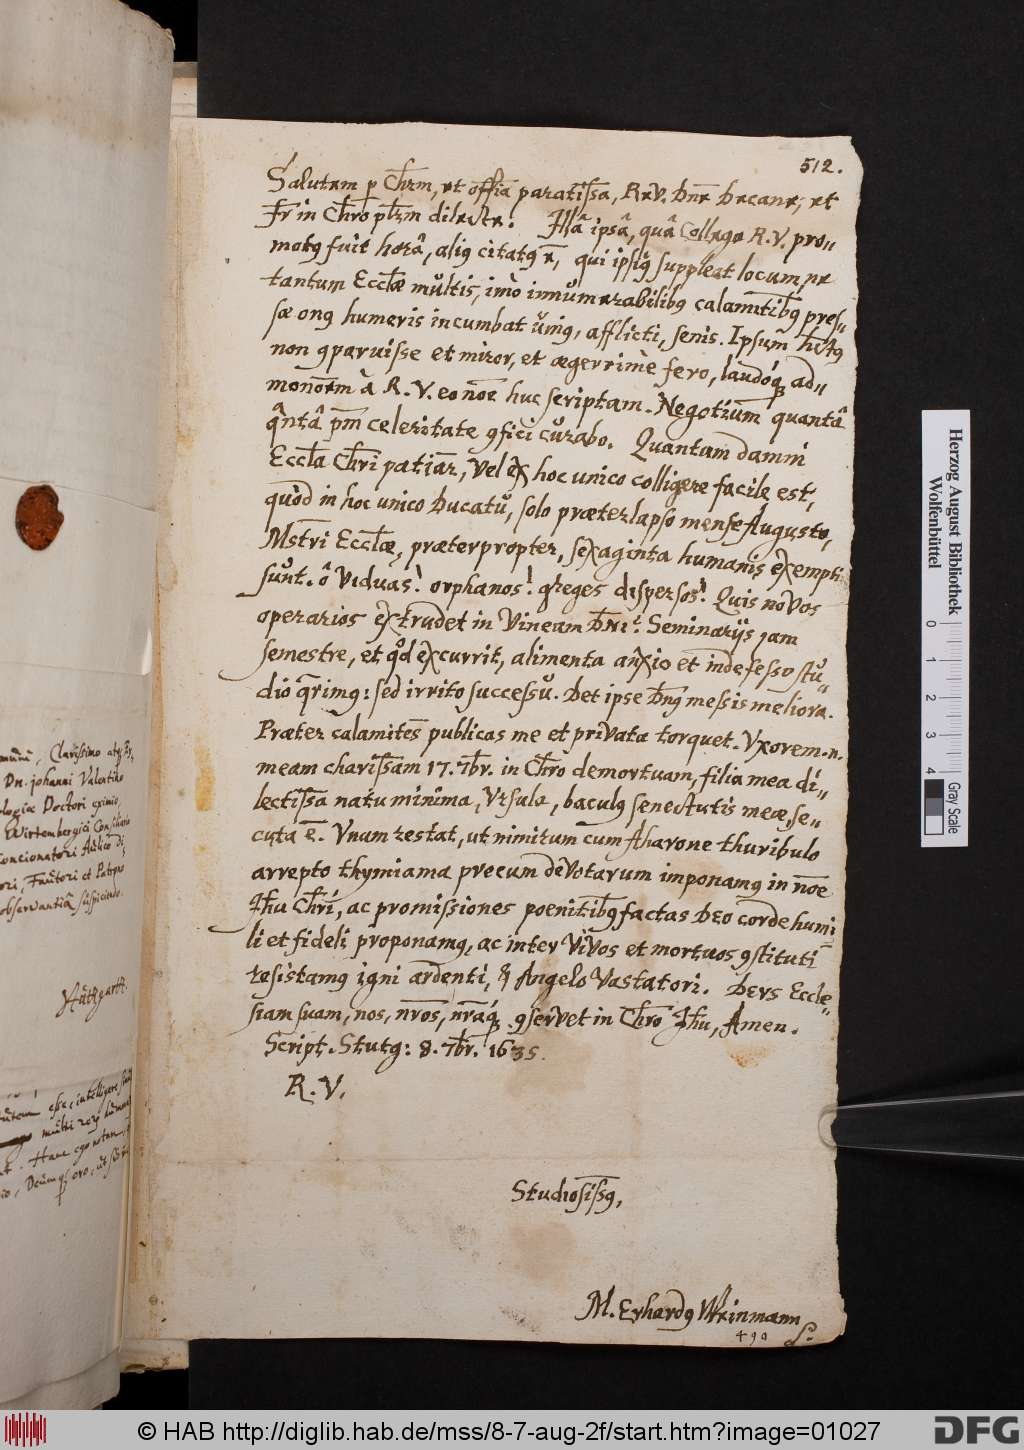 512.
Salutem p Chrm, et offia paratissa, Rev. Dne Decane, et
Fr in Chro plrm dilecte. Illâ ipsâ, quâ Collega R.V. pro„
motq fuit horâ, aliq citatq ē, qui ipsiq suppleat locum, ne
tantum Ecclae multis, imò innumerabilibq calamitibq pres„
sae onq humeris incumbat uniq, afflicti, senis. Ipsum
non qparuisse et miror, et aegerrimè fero, laudóq ad„
monoem à R.V. eo noe huc scriptam. Negotium quantâ
qntâ pm celeritate qfici curabo. Quantam damni
Eccla Chri patiar, vel ex hoc unico colligere facile est,
quòd in hoc unico Ducatu, solo praeterlapso mense Augusto,
Mstri Ecclae, praeterpropter, sexaginta humanis exempti
sunt. ô viduas! orphanos! greges dispersos! Quis novos
operarios extrudet in Vineam DNI? Seminarijs jam
semestre, et qd excurrit, alimenta anxio et indefesso stu„
dio qrimq: sed irrito successu. Det ipse Dnq messis meliora.
Praeter calamites publicas me et privata torquet. Vxorem .n.
meam charissam 17. 7br. in Chro demortuam, filia mea di„
lectissa natu minima, Ursula, baculq senectutis meae, se„
cuta ē. Vnum restat, ut nimirum cum Aharone thuribulo
arrepto thymiama precum devotarum imponamq in noe
Jhu Chri, ac promissiones poenitibq factas DEO corde humi„
li et fideli proponamq, ac inter vivos et mortuos qstituti
resistamq igni ardenti, & Angelo vastatori. DEVS Eccle„
siam suam, nos, nros, nraqq qservet in Chro Jhu, Amen.
Script. Stutg: 8. 7br. 1635.
R. V.
Studiosissq,
M. Erhardq Weinmann
490 S.
Clarissimo atq
Dn. Johanni Valentino
Doctori eximio,
Wirtembergici Consiliario
Concionatori Aulico
Fautori et Patrono
observantiâ suspiciendo.
Stutgartt.
esse, intelligere
multi
Hanc ego notam
Deumq oro, ut
Herzog August Bibliothek
Wolfenbüttel
0 1 2 3 4
Gray Scale
© HAB http://diglib.hab.de/mss/8-7-aug-2f/start.htm?image=01027
DFG